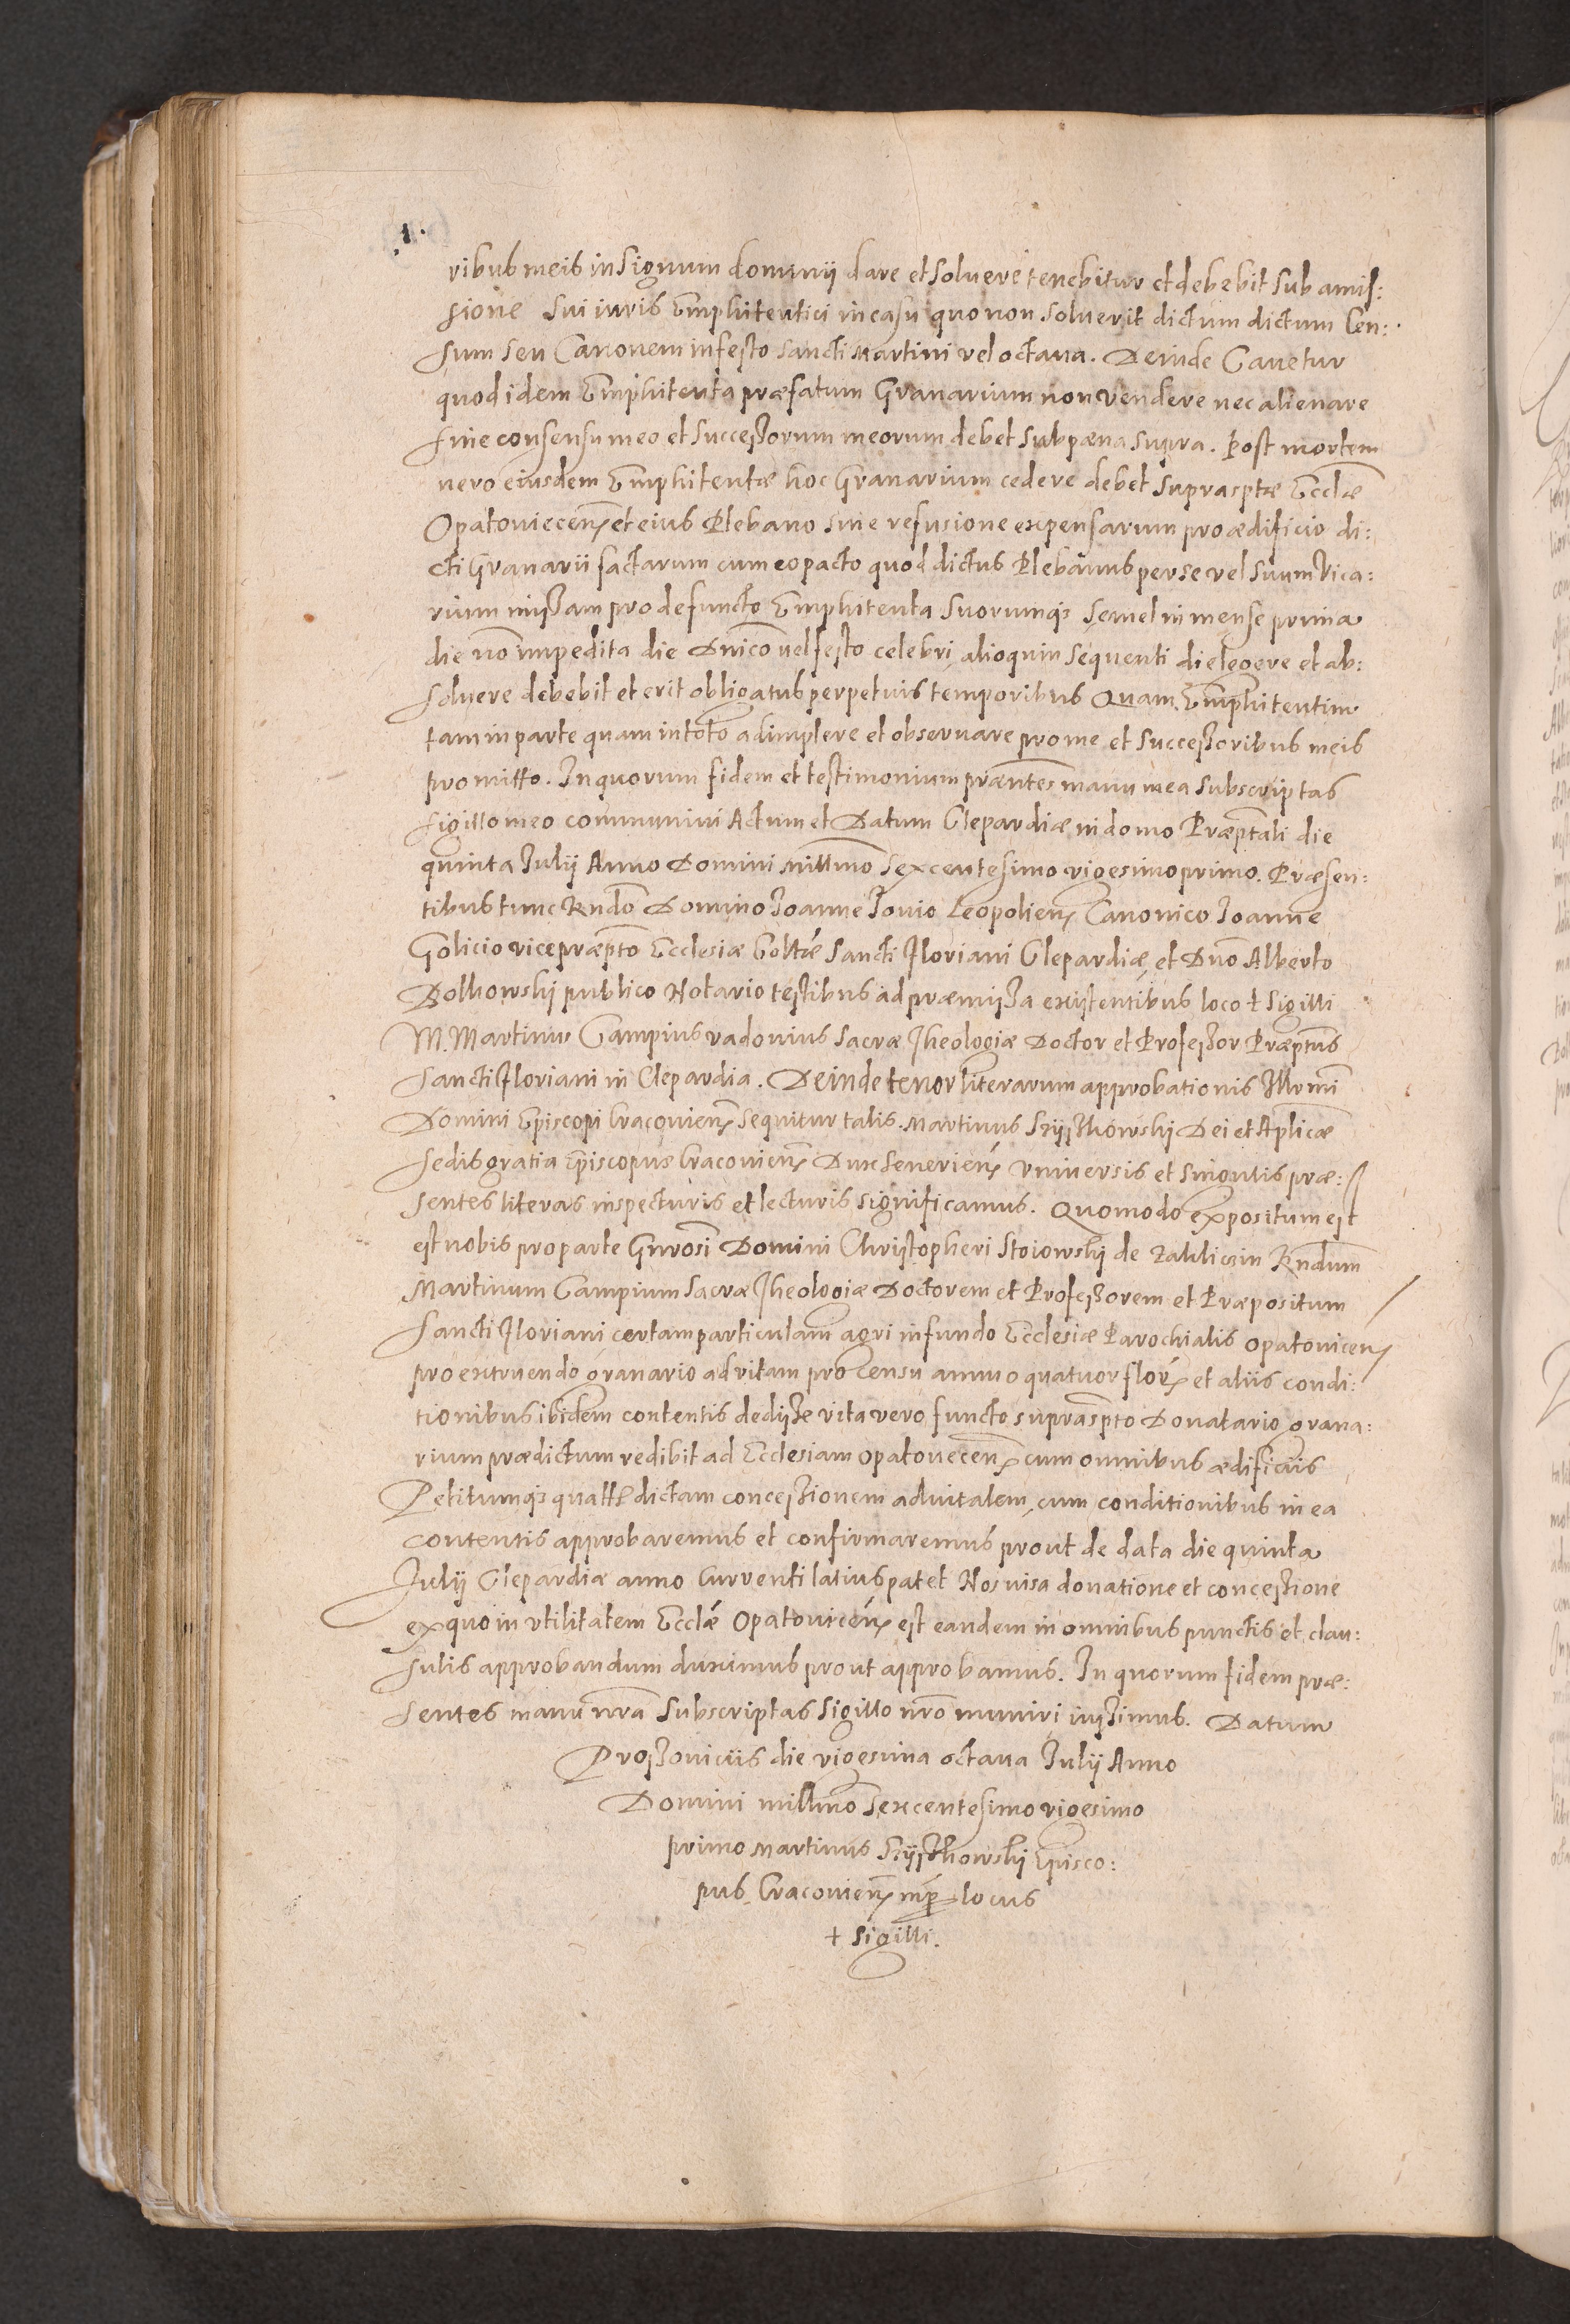 ribus meis in signum dominij dare et soluere tenebitur et debebit sub amis:
sione sui iuris Emphiteutici in casu quo non soluerit dictum dictum Cen:
sum seu Canonem in festo Sancti Martini vel octaua. Deinde Cauetur
quod idem Emphiteuta præfatum Granarium non vendere nec alienare
sine consensu meo et Successorum meorum debet sub pæna supra. Post mortem
uero eiusdem Emphiteutæ hoc Granarium cedere debet suprasptæ Ecclæ
Opatouiecen et eius Plebano sine refusione expensarum pro ædificio di:
cti Granarii factarum cum eo pacto quod dictus Plebanus per se vel suum Vica:
rium missam pro defuncto Emphiteuta suorumq semel in mense prima
die no impedita die Dnico uel festo celebri alioquin sequenti die legere et ab:
soluere debebit et erit obligatus perpetuis temporibus Quam Emphiteutim
tam in parte quam in toto adimplere et obseruare pro me et successoribus meis
promitto. In quorum fidem et testimonium præntes manu mea subscriptas
sigillo meo communiui Actum et Datum Clepardiæ in domo Præptali die
quinta Iulij Anno Domini Millmo sexcentesimo vigesimo primo. Præsen:
tibus tunc Rndo Domino Ioanne Iouio Leopolien Canonico Ioanne
Golicio vicepræpto Ecclesiæ Colltæ Sancti Floriani Clepardiæ, et Dno Alberto
Dolhowskj publico Notario testibus ad præmissa existentibus loco + sigilli
M. Martinus Campius vadouius Sacræ Theologiæ Doctor et Professor Præptus
Sancti Floriani in Clepardia. Deinde tenor literarum approbationis Illrmi
Domini Episcopi Cracouien sequitur talis. Martinus Szyszkowskj Dei et Aplicæ
sedis gratia Episcopus Cracouien Dux Seuerien vniuersis et singulis præ:
sentes literas inspecturis et lecturis significamus. Quomodo expositum est
est nobis pro parte Gnrosi Domini Christopheri Stoiowskj de Zakliczin Rndum
Martinum Campium Sacræ Theologiæ Doctorem et Professorem et Præpositum
Sancti Floriani certam particulam agri in fundo Ecclesiæ Parochialis Opatouicen
pro extruendo granario ad vitam pro Censu annuo quatuor floren et aliis condi:
tionibus ibidem contentis dedisse vita vero functo supraspto Donatario grana:
rium prædictum redibit ad Ecclesiam Opatouecen cum omnibus ædificiis
Petitumq quatt dictam concessionem aduitalem, cum conditionibus in ea
contentis approbaremus et confirmaremus prout de data die quinta
Iulij Clepardiæ anno Currenti latius patet Nos uisa donatione et concessione
ex quo in vtilitatem Ecclæ Opatouicen est eandem in omnibus punctis et clau:
sulis approbandum duximus prout approbamus. In quorum fidem præ:
sentes manu nra subscriptas sigillo nro muniri iussimus. Datum
Proszouiciis die vigesima octaua Iulij Anno
Domini millmo sexcentesimo vigesimo
primo Martinus Szyszkowskj Episco:
pus Cracouien mp locus
+ sigilli.